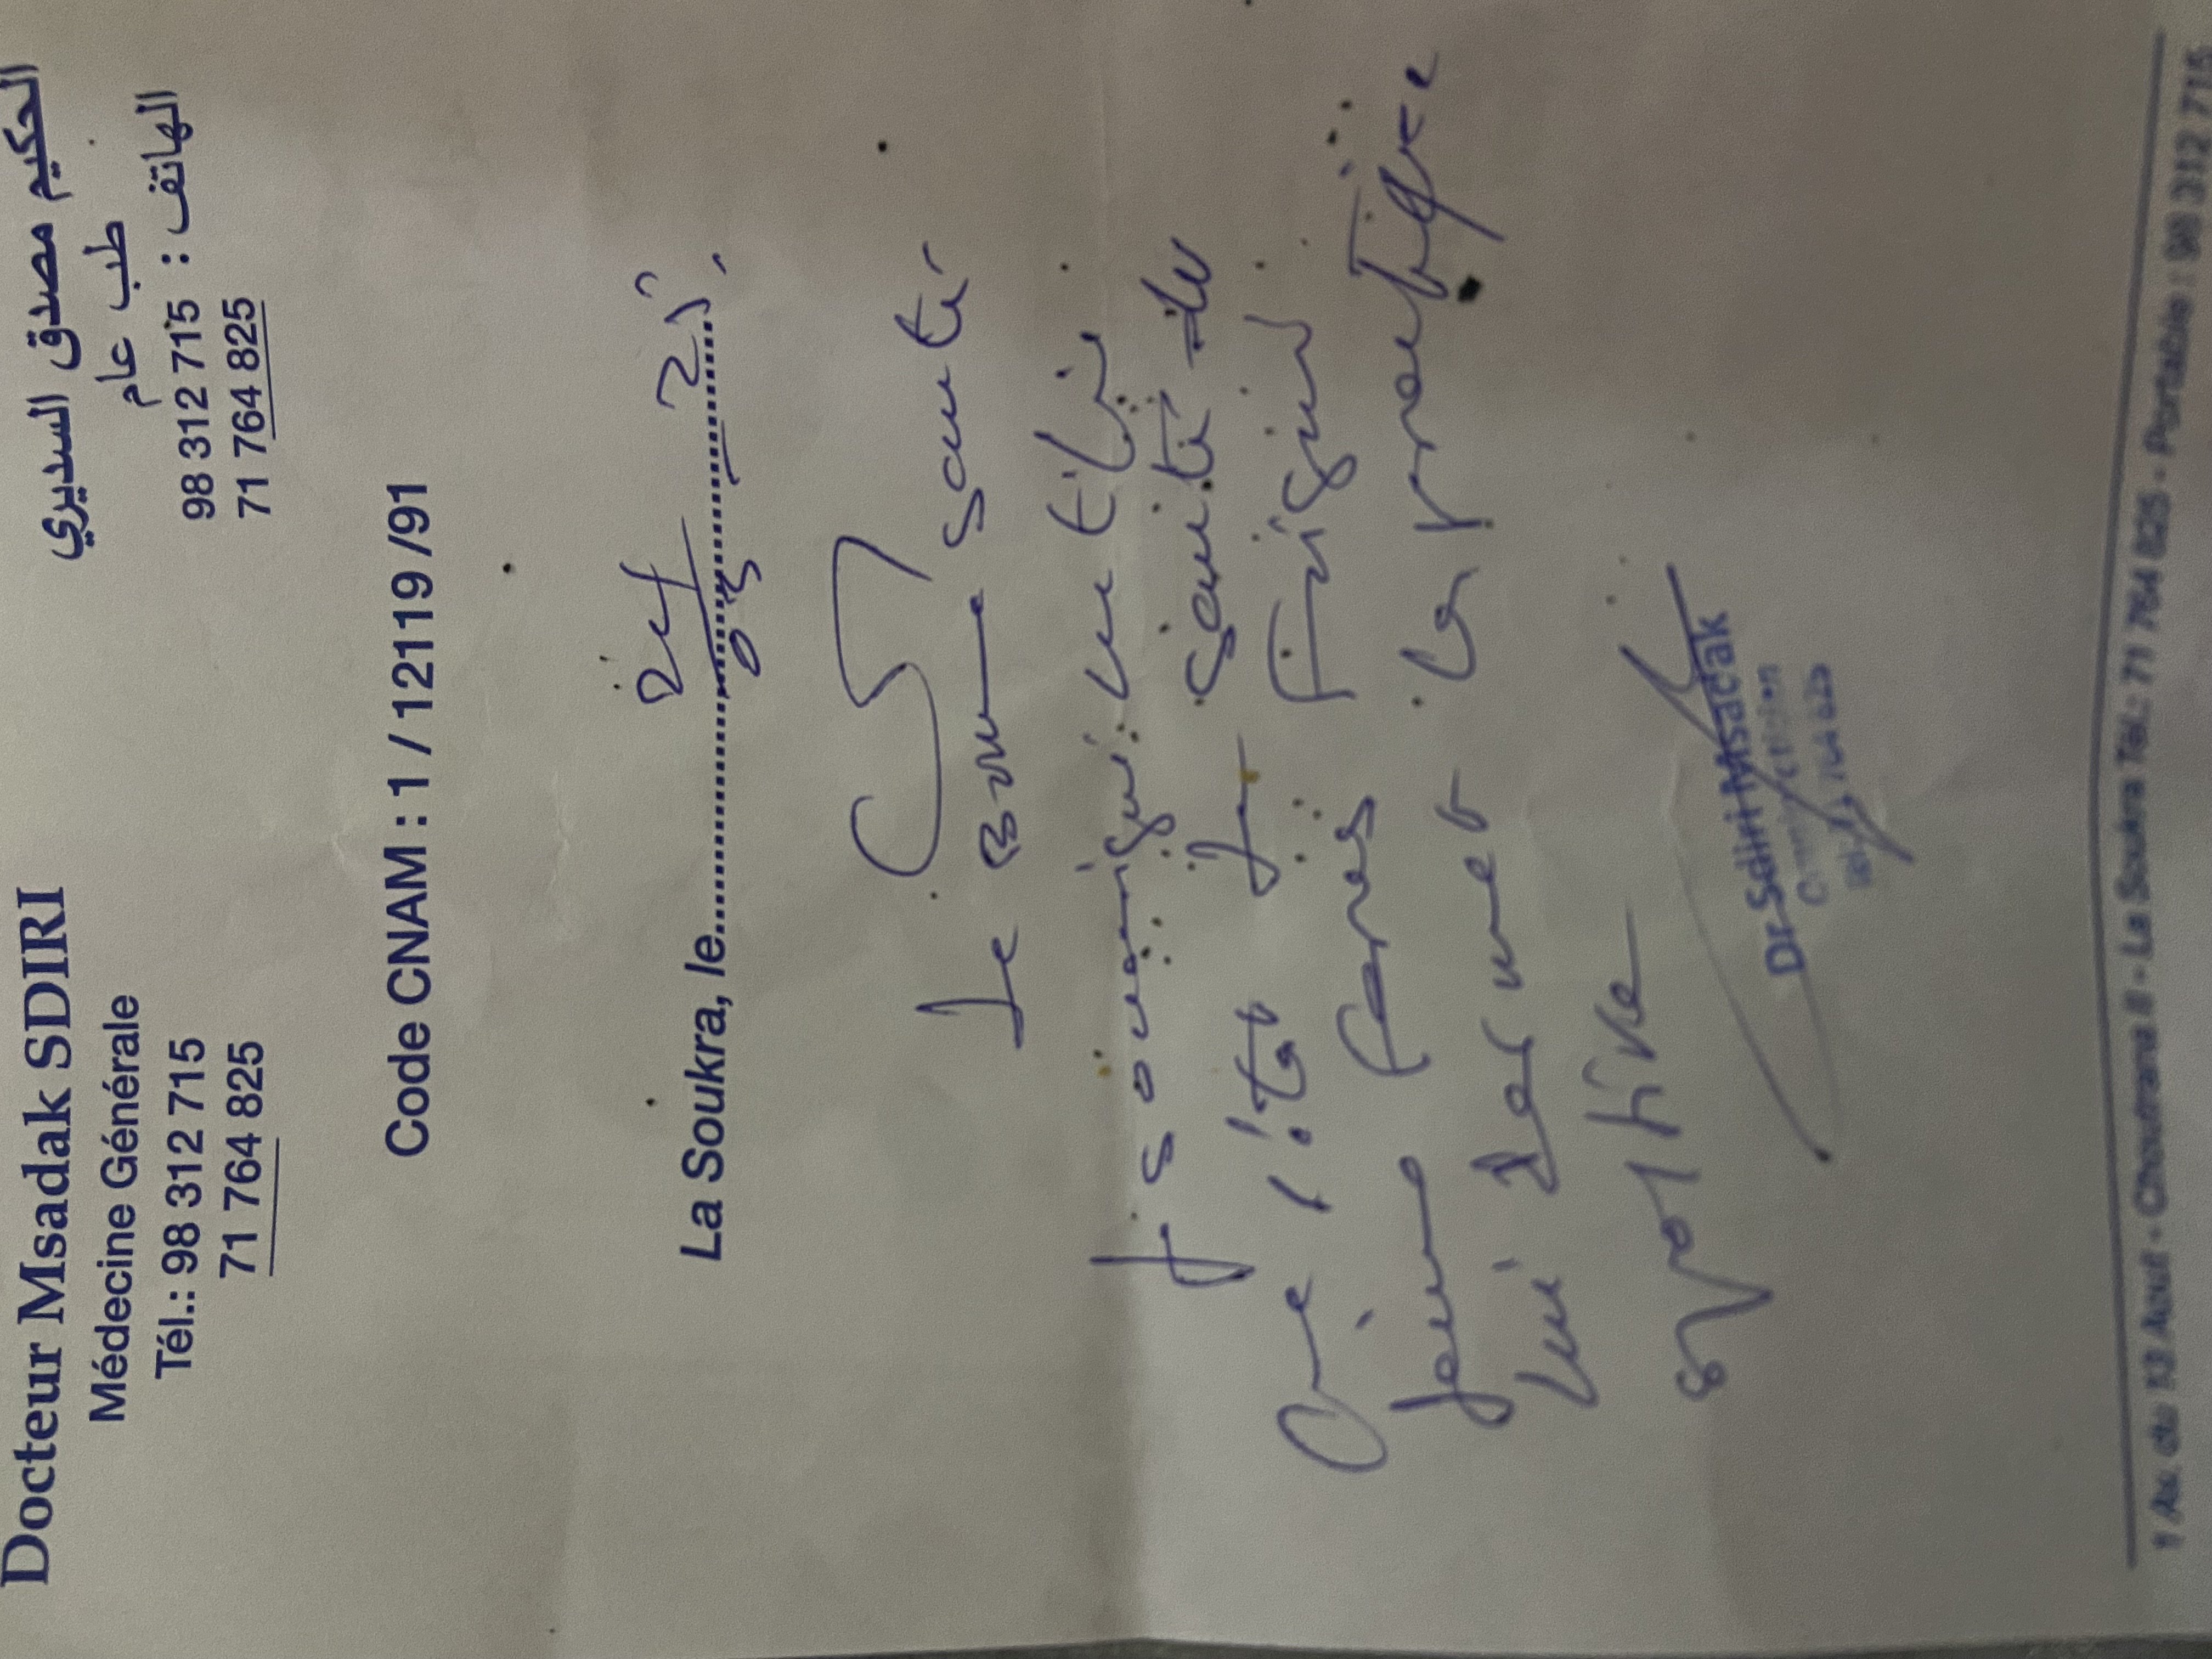 Docteur Msadak SDIRI
Médecine Générale
Tél.: 98 312 715
71 764 825
الحكيم مصدق السديري
طب عام
الهاتف : 98 312 715
71 764 825
Code CNAM : 1 / 12119 /91
La Soukra, le
C
de Bonne santé
Je soussigné certifie
que l'état de santé du
jeune Fares
lui permet la pratique
sportive
Dr Sdiri Msadak
1 Av. du 13 Aout - Choutrana II - La Soukra Tél.: 71 764 825 - Portable : 98 312 715